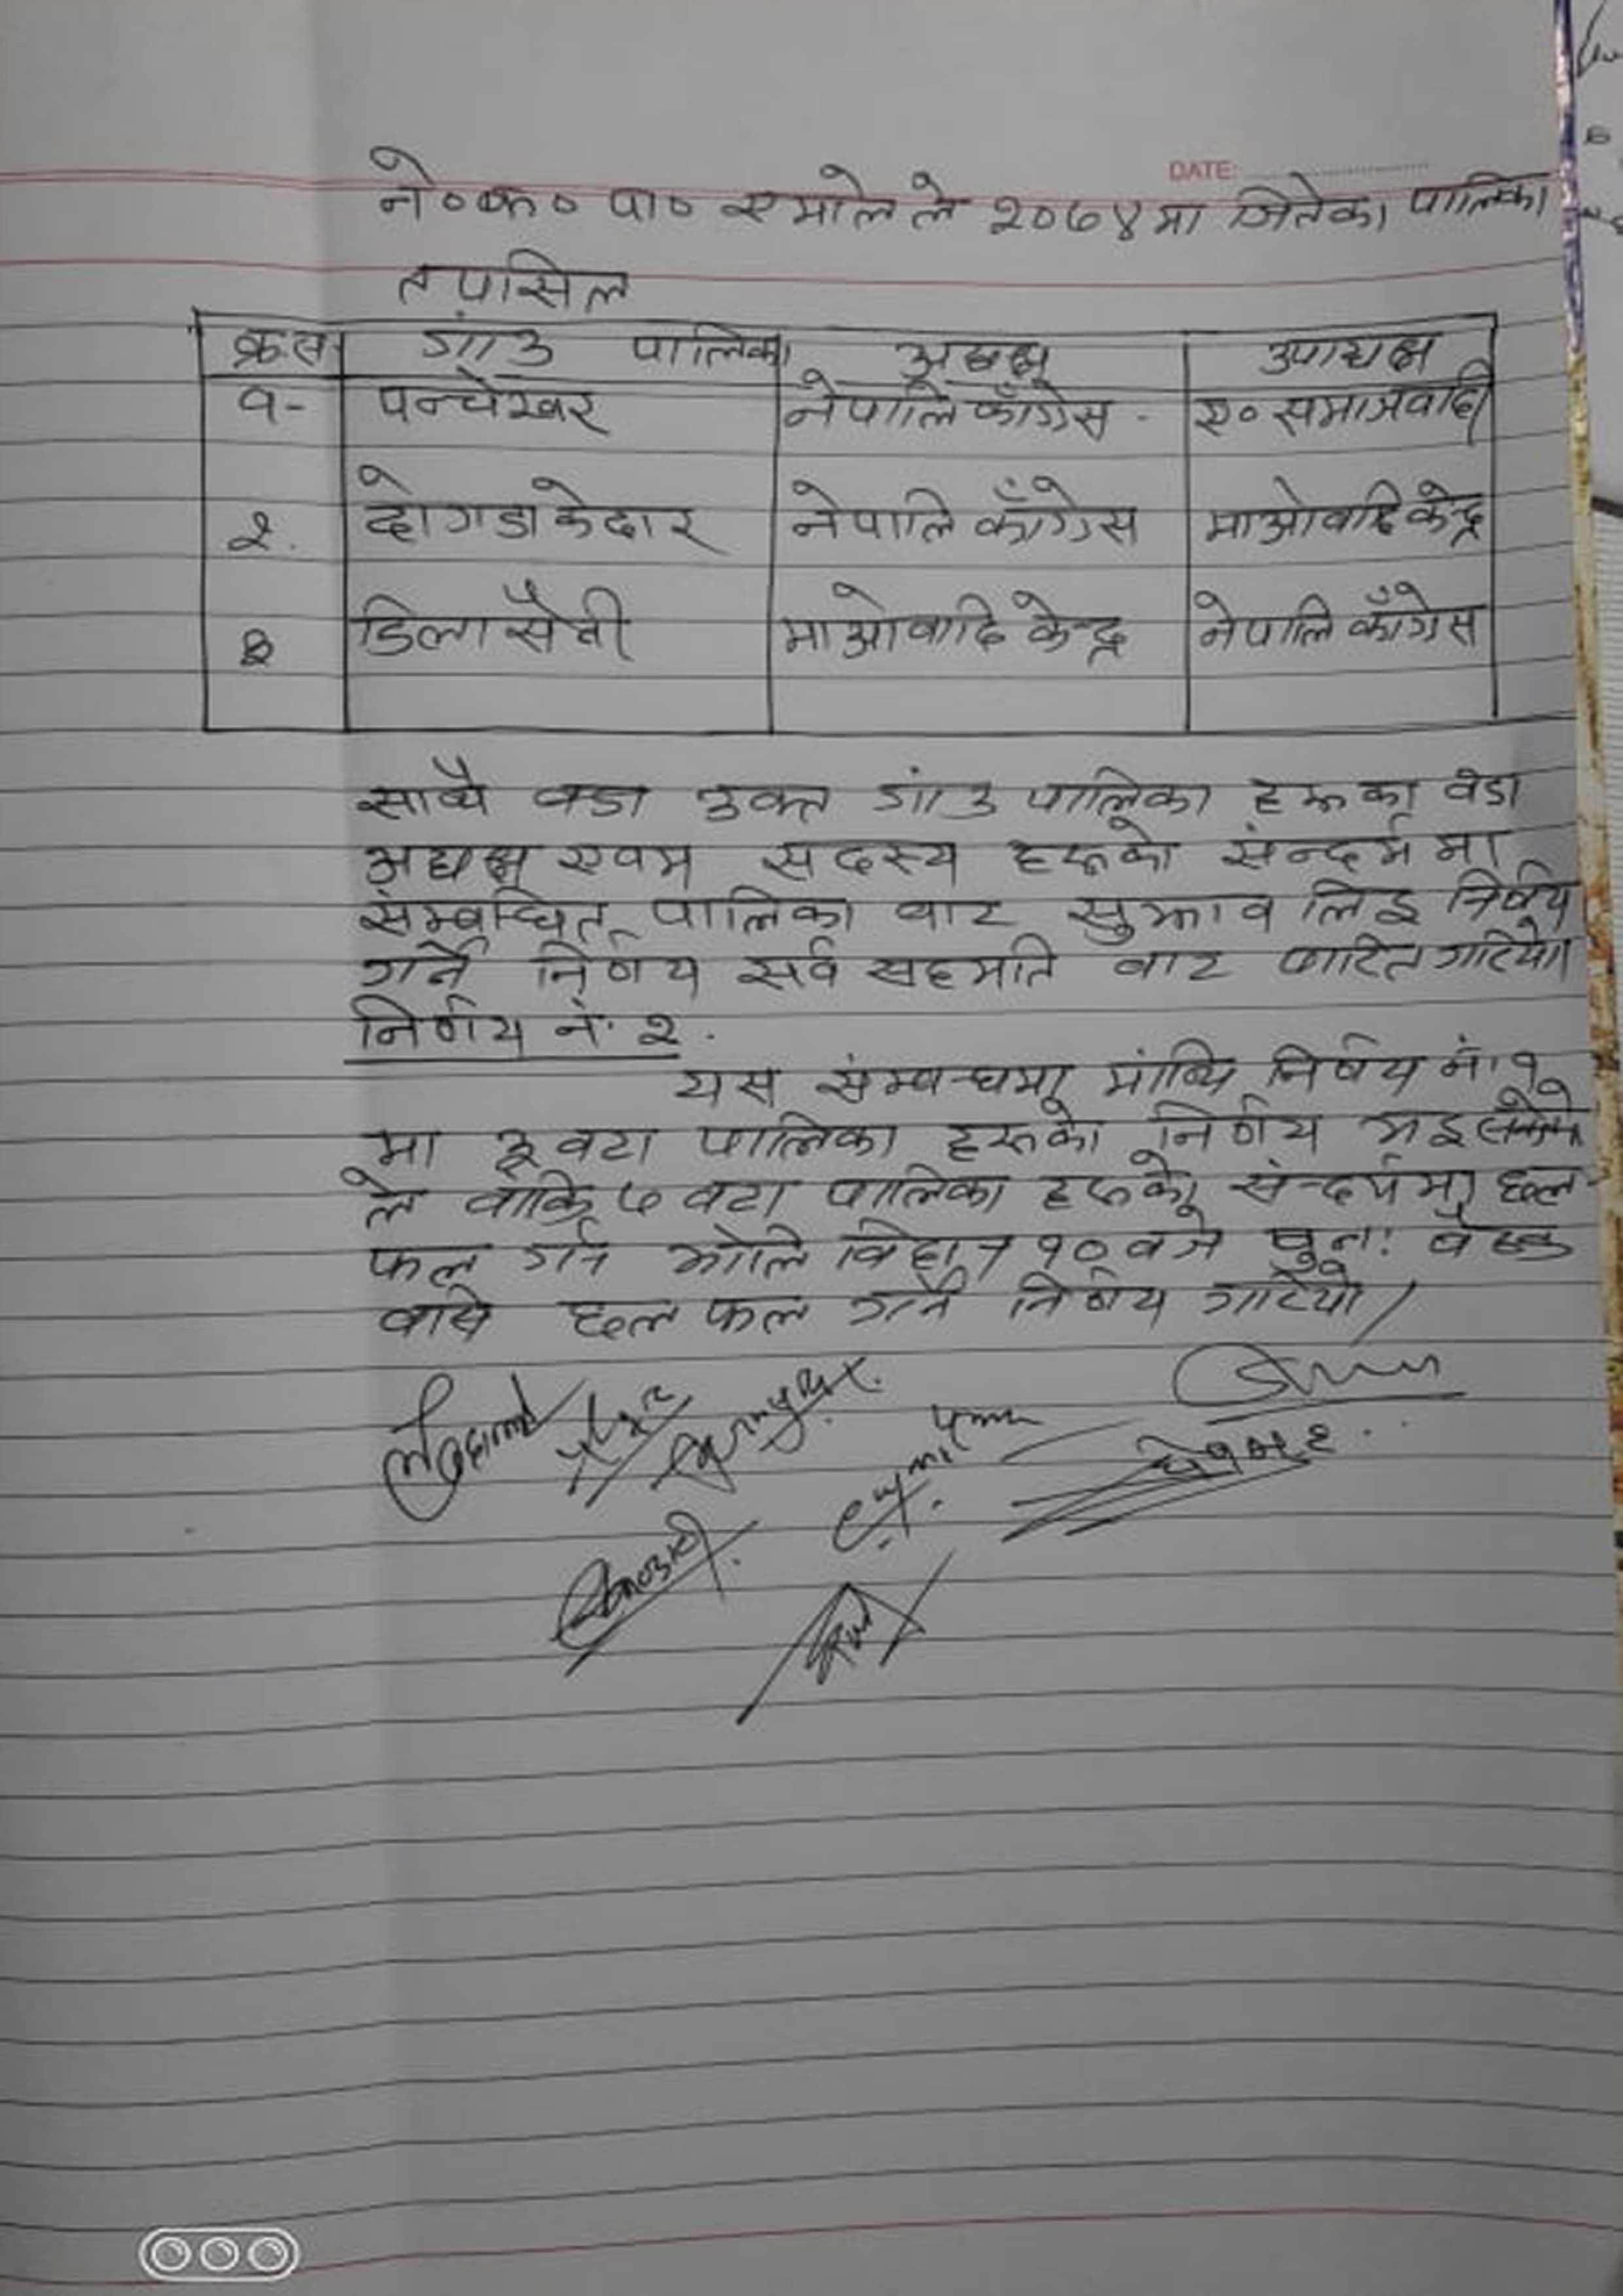 DATE:
ने०क० पा० एमाले ले २०७४ मा जितेका पालिका
तपसिल
क्र.स गांउ पालिका अध्यक्ष उपाध्यक्ष
१- पन्चेश्वर नेपालि काँग्रेस - ए० समाजवादी
२. दोगडा केदार नेपालि काँग्रेस माओवादि केन्द्र
३ डिलासैनी माओवादि केन्द्र नेपालि काँग्रेस
साथै वडा उक्त गांउ पालिका हरूका वडा
अध्यक्ष एवम सदस्य हरूको संन्दर्भ मा
संम्बन्धित पालिका वाट सुझाव लिइ निर्णय
गर्ने निर्णय सर्व सहमति वाट पारित गरियो।
निर्णय नं. २.
यस संम्बन्धमा मांथि निर्णय नं. १
मा ३ वटा पालिका हरूको निर्णय भइ सकेको
ले वाँकि ७ वटा पालिका हरूको संन्दर्भमा छल-
फल गर्न भोलि विहान १० वजे पुन: बैठक
वसि छलफल गर्ने निर्णय गरियो।